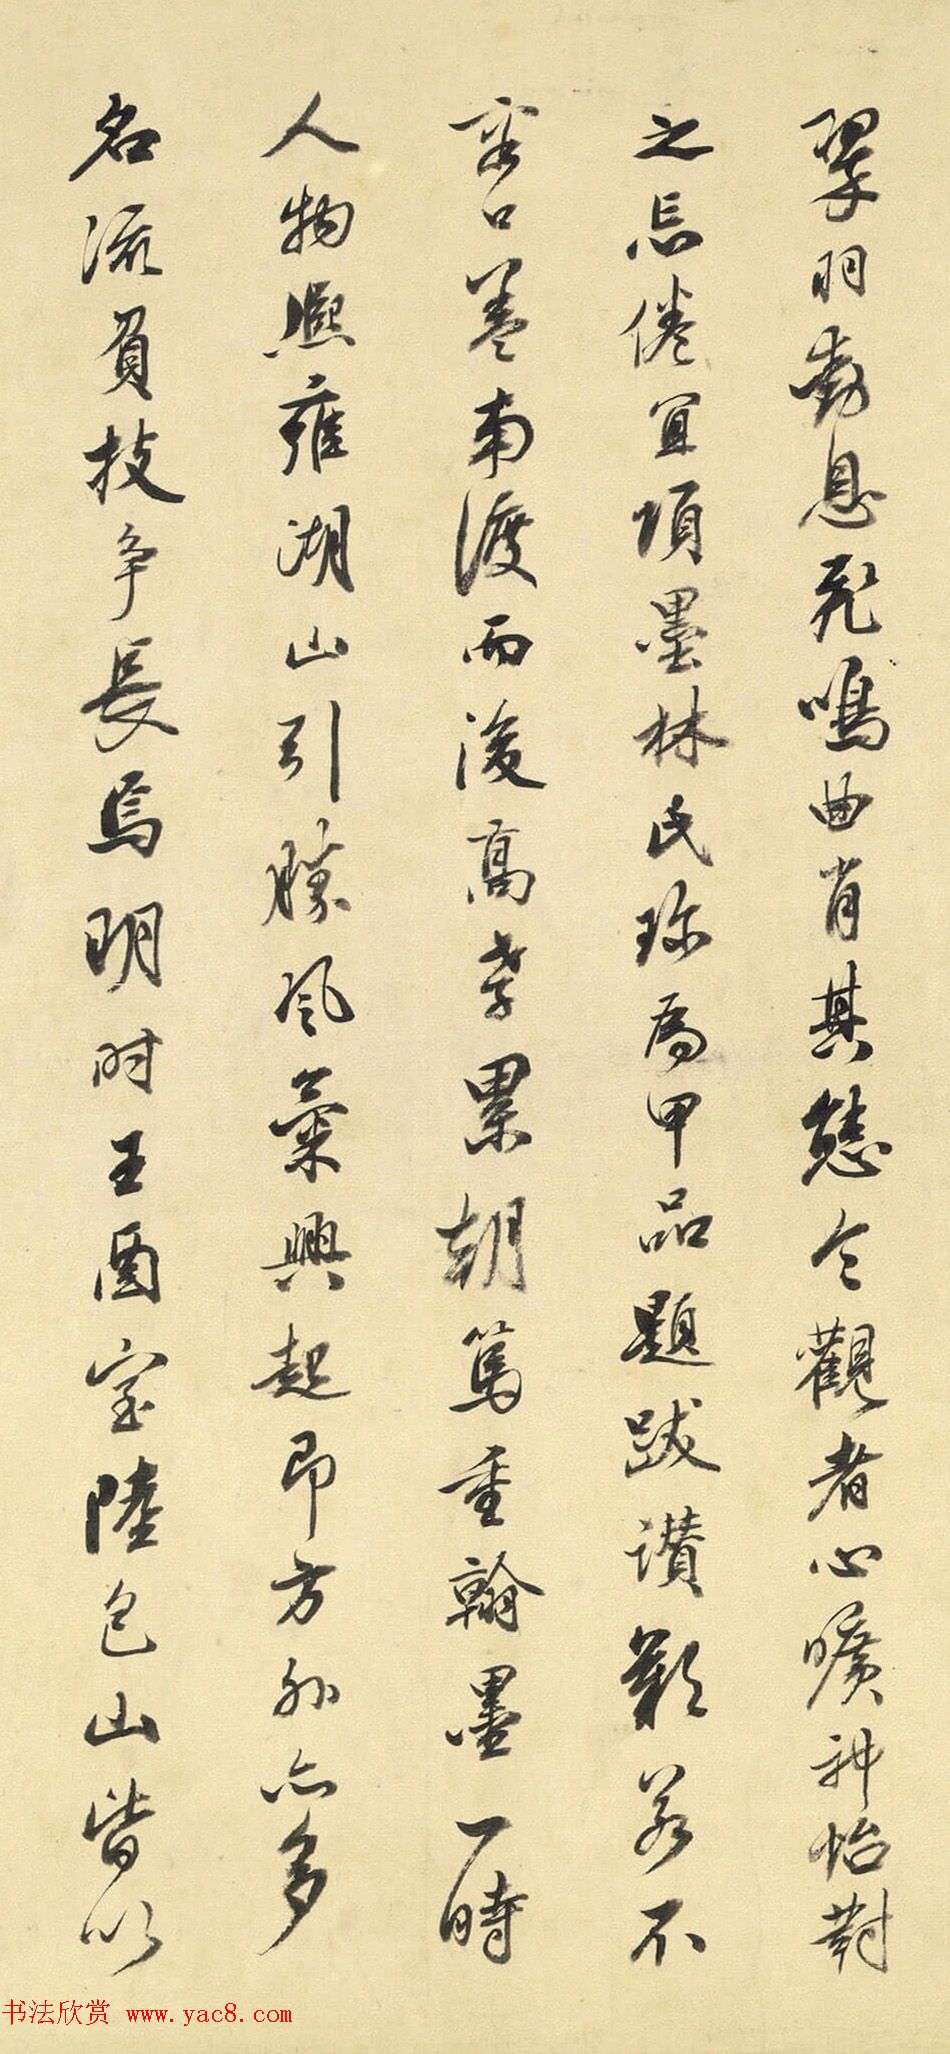 翠羽動息飛鳴曲肖其態令觀者心曠神怡對
之忘倦宜項墨林氏珎為甲品題跋讃歎若不
容口蓋南渡而後高孝累朝篤重翰墨一時
人物熙雍湖山引勝風氣興起即方外亦多
名流負技爭長焉明時王酉室陸包山皆以
书法欣赏 www.yac8.com